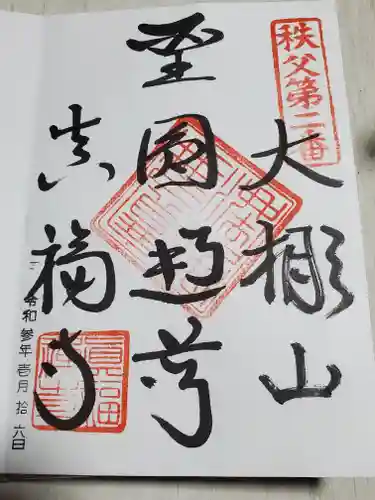 秩父第二番
大棚山
聖圓通尊
真福寺
令和參年壱月拾六日